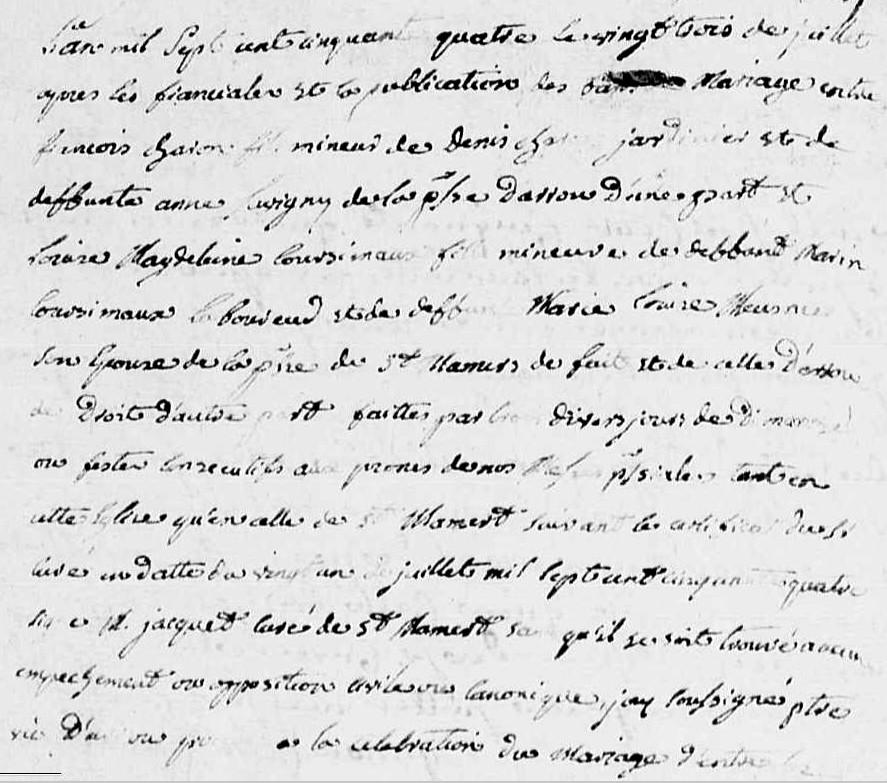 L'an mil sept cent cinquante quatre le vingt trois de juillet
apres les fiancialles et la publication des Mariage entre
francois charon fils mineur de denis charon jardinier et de
deffunte anne de la psse D'arrou D'une part et
Louise Magdeleine Coursimaux fille mineure de deffunt Marin
Coursimaux laboureur et de deffunte Marie Louise Meusnier
son Epouse de la psse de St Mamers de fait et de celle D'arrou
de Droit d'autre part faittes par trois divers jours de Dimanche
ou festes consecutifs aux prones de nos Messes psiales tant en
cette Eglise qu'en celle de St Mamert suivant le certificat du Sr
Curé en datte du vingt un de juillet mil sept cent cinquante quatre
signé M. jacquet Curé de St Mamert sans qu'il se soit trouvé aucun
empechement ou opposition civile ou canonique, j'ay soussigné ptre
vic D'arrou a la celebration du Mariage d'entre les